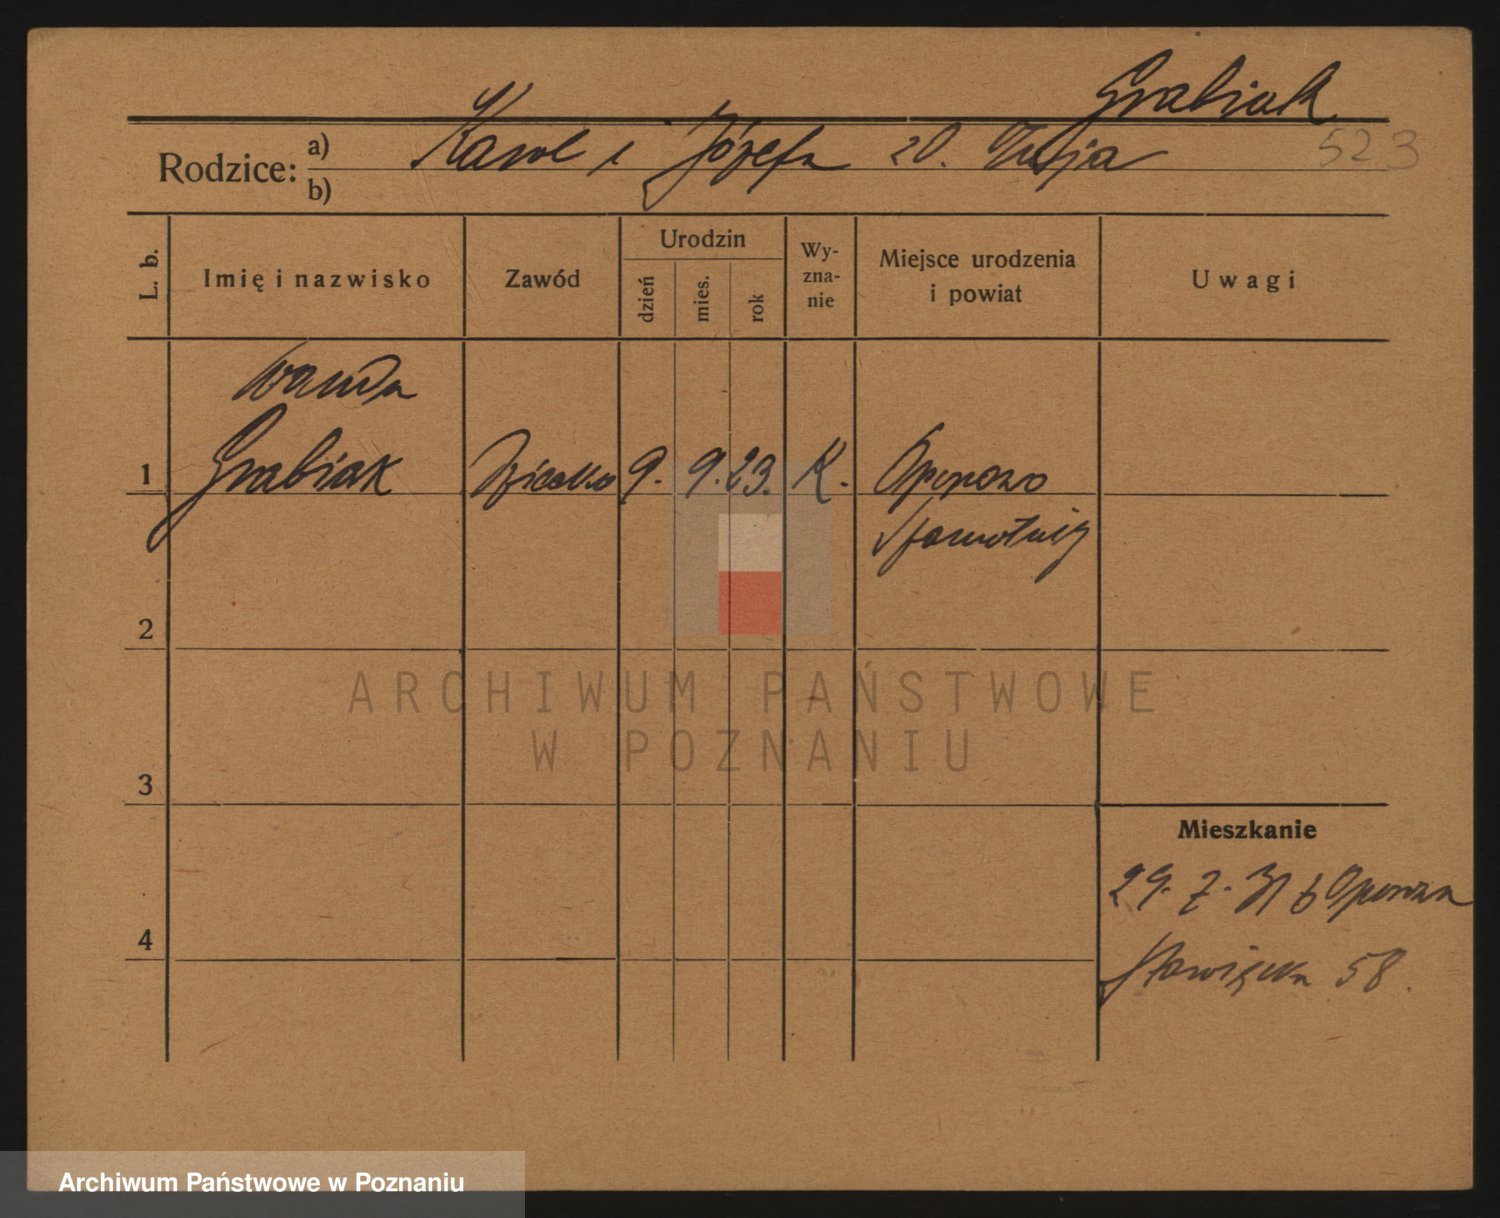 Grabiak
523
Rodzice: a) Karol i Józefa zd.
b)
L. b.
Imię i nazwisko
Zawód
Urodzin
dzień
mies.
rok
Wy-
zna-
nie
Miejsce urodzenia
i powiat
Uwagi
Wanda
1 Grabiak Dziecko 9. 9. 23. K. Oporowo
Szamotuły
2
3
4
Mieszkanie
29. 7. 31 b
58.
ARCHIWUM PAŃSTWOWE
W POZNANIU
Archiwum Państwowe w Poznaniu